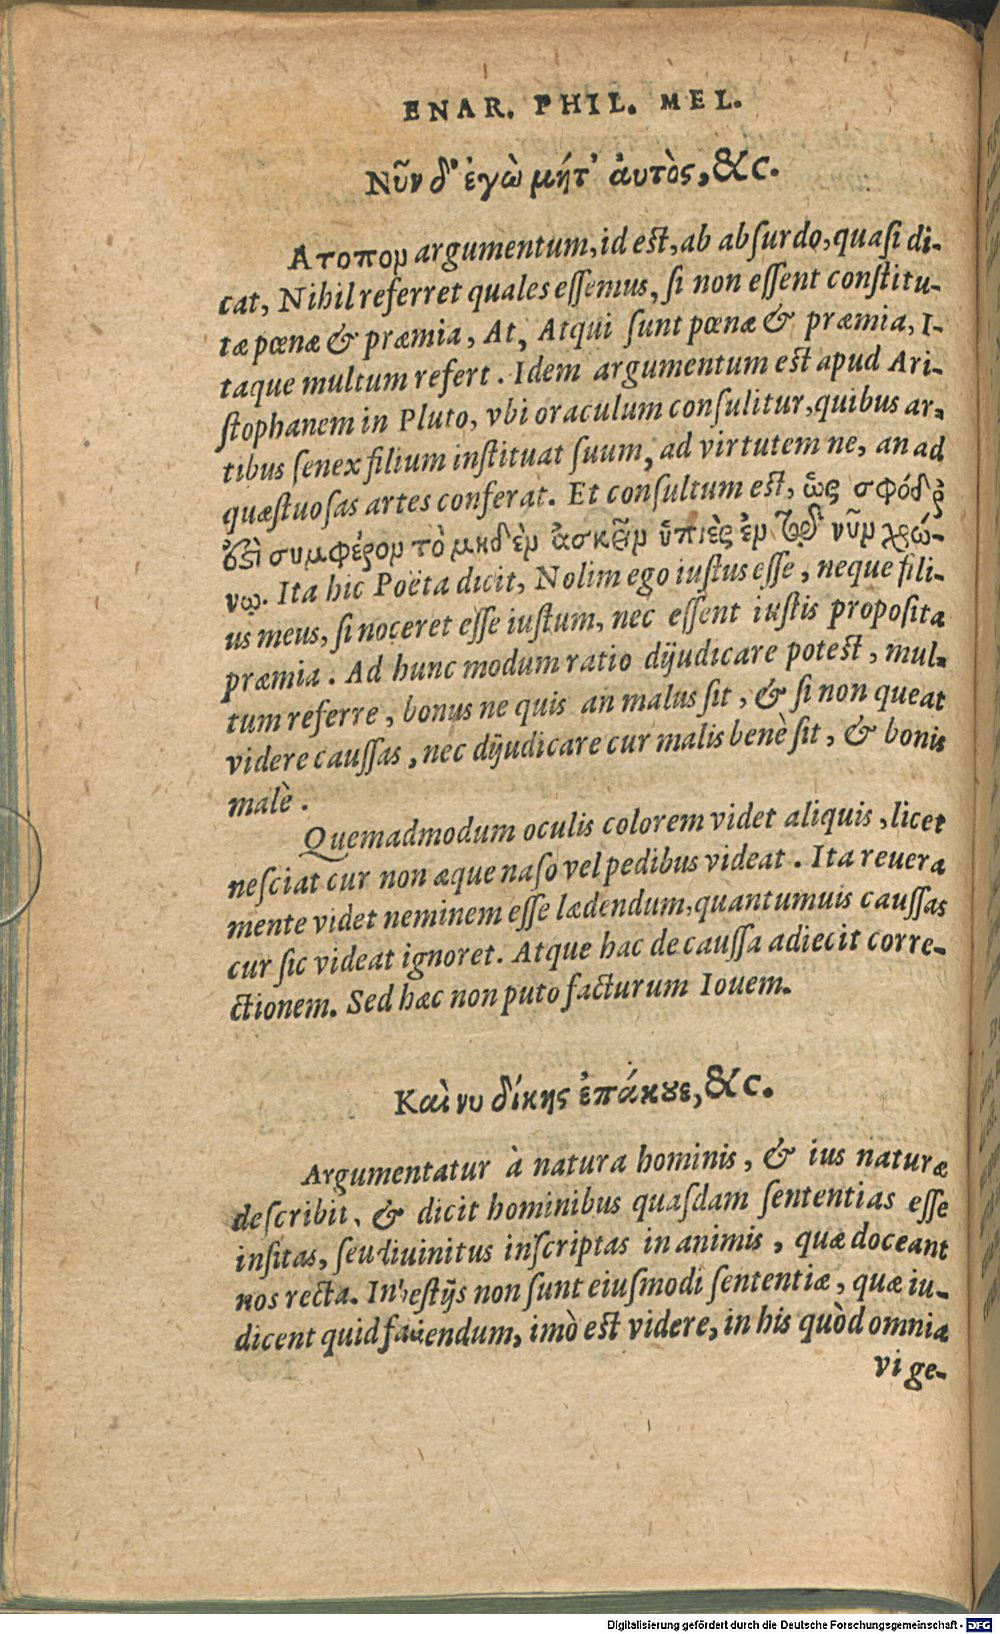 ENAR. PHIL. MEL.
Νῦν δ' ἐγὼ μήτ' ἀυτὸς, &c.
Ατοπον argumentum, id est, ab absurdo, quasi di-
cat, Nihil referret quales essemus, si non essent constitu-
tæ pœnæ & præmia, At, Atqui sunt pœnæ & præmia, I-
taque multum refert. Idem argumentum est apud Ari-
stophanem in Pluto, vbi oraculum consulitur, quibus ar-
tibus senex filium instituat suum, ad virtutem ne, an ad
quæstuosas artes conferat. Et consultum est, ὣς σφόδρ'
ἐςὶ συμφέρον τὸ μηδὲν ἀσκεῖν ὕπιὲς ἐν τῷδε νῦν χρό-
νῳ. Ita hic Poëta dicit, Nolim ego iustus esse, neque fili-
us meus, si noceret esse iustum, nec essent iustis proposita
præmia. Ad hunc modum ratio dijudicare potest, mul-
tum referre, bonus ne quis an malus sit, & si non queat
videre caussas, nec dijudicare cur malis benè sit, & bonis
malè.
Quemadmodum oculis colorem videt aliquis, licet
nesciat cur non æque naso vel pedibus videat. Ita reuera
mente videt neminem esse lædendum, quantumuis caussas
cur sic videat ignoret. Atque hac de caussa adiecit corre-
ctionem. Sed hæc non puto facturum Iouem.
Καὶ νυ δίκης ἐπάκουε, &c.
Argumentatur à natura hominis, & ius naturæ
describit, & dicit hominibus quasdam sententias esse
insitas, seu diuinitus inscriptas in animis, quæ doceant
nos recta. In bestijs non sunt eiusmodi sententiæ, quæ iu-
dicent quid faciendum, imò est videre, in his quòd omnia
vi ge-
Digitalisierung gefördert durch die Deutsche Forschungsgemeinschaft - DFG